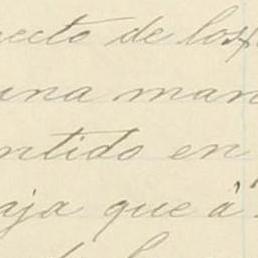 ecto de los
una man
ntido en
aja que á